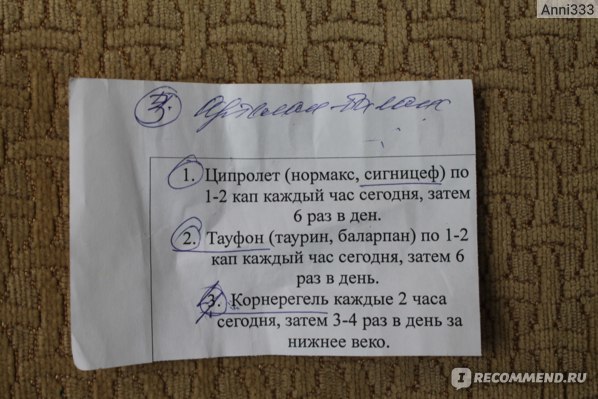 Anni333
3. Артелак-Баланс
1. Ципролет (нормакс, сигницеф) по
1-2 кап каждый час сегодня, затем
6 раз в ден.
2. Тауфон (таурин, баларпан) по 1-2
кап каждый час сегодня, затем 6
раз в день.
3. Корнерегель каждые 2 часа
сегодня, затем 3-4 раз в день за
нижнее веко.
IRECOMMEND.RU